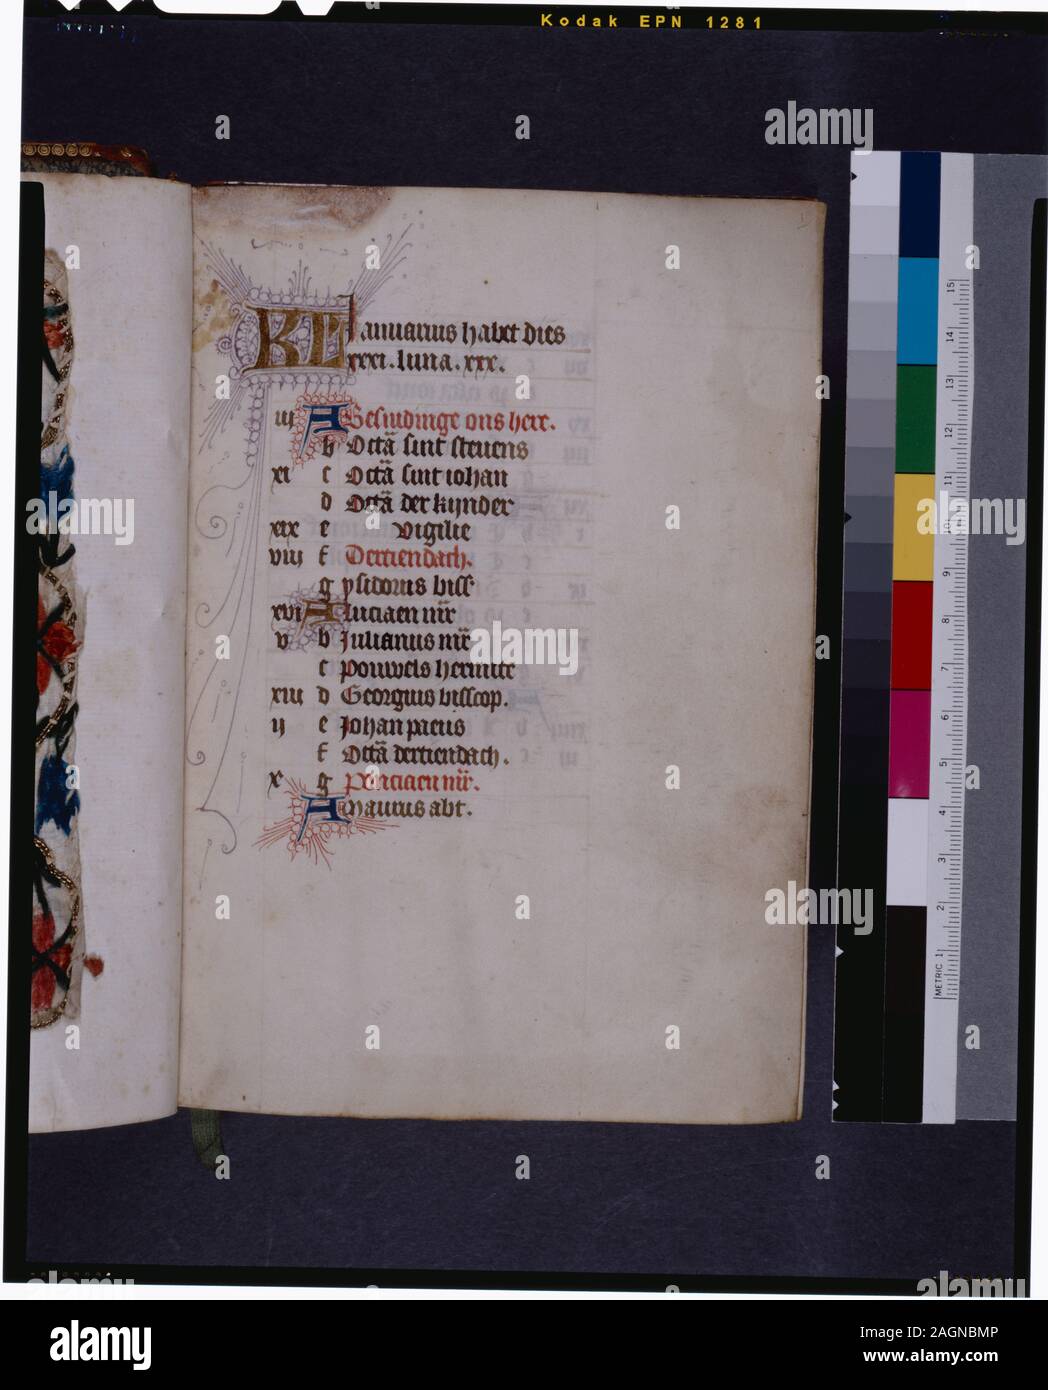 Kodak EPN 1281
KL Januarius habet dies
xxxi. luna. xxx.
iij A Besnidinge ons here.
b Octā sint steuens
xi c Octā sint iohan
d Octā der kijnder
xix e Vigilie
viij f Dertiendach.
g ysidorus biss
xvi A luciaen mr̄
v b Julianus mr̄
c pouwels hermite
xiij d Georgius bisscop.
ij e Johan
f Octā dertiendach.
x g mr̄.
A Maurus abt.
METRIC 1 2 3 4 5 6 7 8 9 10 11 12 13 14 15
a alamy
alamy
Image ID: 2AGNBMP
www.alamy.com